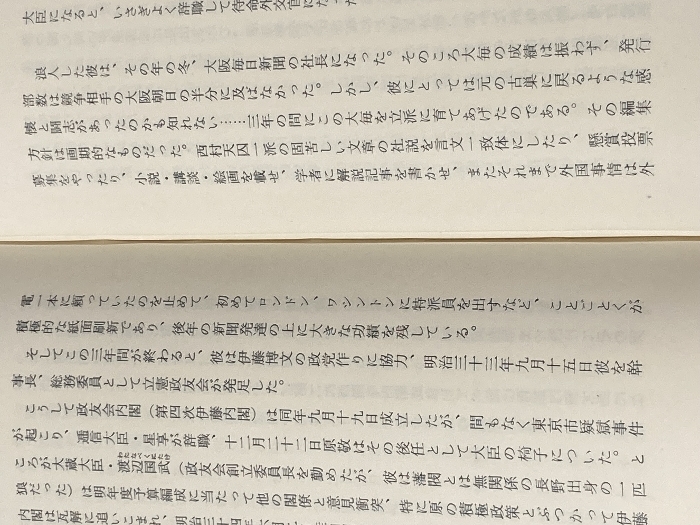 大臣になると、いさぎよく辞職して待命外交官になった
浪人した彼は、その年の冬、大阪毎日新聞の社長になった。そのころ大毎の成績は振わず、発行
部数は競争相手の大阪朝日の半分に及ばなかった。しかし、彼にとっては元の古巣に戻るような感
懐と闘志があったのかも知れない……三年の間にこの大毎を立派に育てあげたのである。その編集
方針は画期的なものだった。西村天囚一派の固苦しい文章の社説を言文一致体にしたり、懸賞投票
募集をやったり、小説・講談・絵画を載せ、学者に解説記事を書かせ、またそれまで外国事情は外
電一本に頼っていたのを止めて、初めてロンドン、ワシントンに特派員を出すなど、ことごとくが
積極的な紙面刷新であり、後年の新聞発達の上に大きな功績を残している。
そしてこの三年間が終わると、彼は伊藤博文の政党作りに協力、明治三十三年九月十五日彼を幹
事長、総務委員として立憲政友会が発足した。
こうして政友会内閣（第四次伊藤内閣）は同年九月十九日成立したが、間もなく東京市疑獄事件
が起こり、逓信大臣・星亨が辞職、十二月二十二日原敬はその後任として大臣の椅子についた。と
ころが大蔵大臣・渡辺国武（政友会創立委員長を勤めたが、彼は藩閥とは無関係の長野出身の一匹
狼だった）は明年度予算編成に当たって他の閣僚と意見衝突、特に原の積極政策とぶつかって伊藤
内閣は瓦解に追いこまれ、明治三十四年